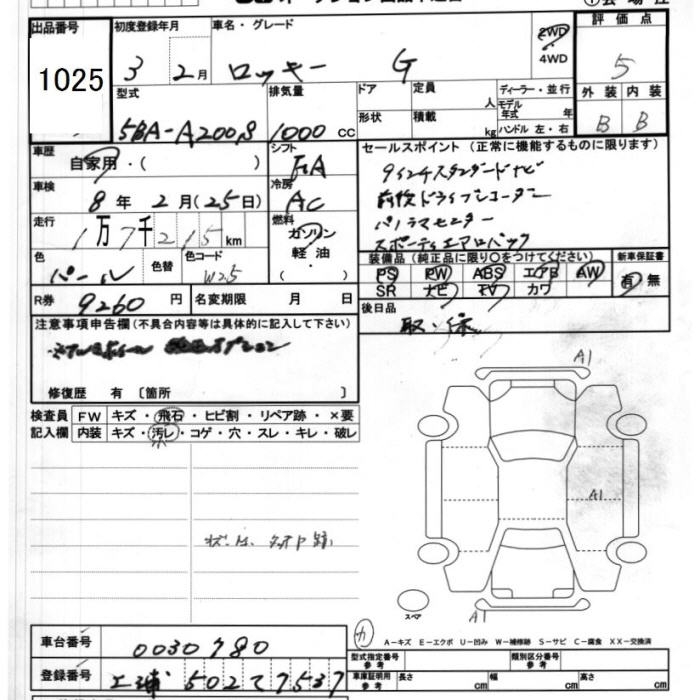 出品番号
1025
初度登録年月
3 2月
車名・グレード
ロッキー G
2WD
4WD
評価点
5
外装 内装
B B
型式
5BA-A200S
排気量
1000 CC
ドア
形状
定員
人
積載
kg
ディーラー・並行
モデル年式 年
ハンドル 左・右
車歴
自家用・( )
シフト
FA
車検
8年 2月(25日)
冷房
AC
走行
1万7千215km
燃料
ガソリン
軽油・
( )
色
パール
色替
色コード
W25
R券
9260円
名変期限 月 日
セールスポイント (正常に機能するものに限ります)
9インチスタンダードナビ
前後ドライブレコーダー
パノラマモニター
スポーティエアロパック
装備品 (純正品に限り○をつけてください)
PS PW ABS エアB AW
SR ナビ TV カワ
新車保証書
有・無
後日品
取・保
注意事項申告欄 (不具合内容等は具体的に記入して下さい)
修復歴 有 〔箇所 〕
検査員
記入欄
FW キズ・飛石・ヒビ割・リペア跡・×要
内装 キズ・汚レ・コゲ・穴・スレ・キレ・破レ
A1
A1
A1
スペア
A-キズ E-エクボ U-凹み W-補修跡 S-サビ C-腐食 XX-交換済
車台番号
0030780
登録番号
502 て 7537
型式指定番号
参考
類別区分番号
参考
車庫証明用
参考
長さ cm
幅 cm
高さ cm